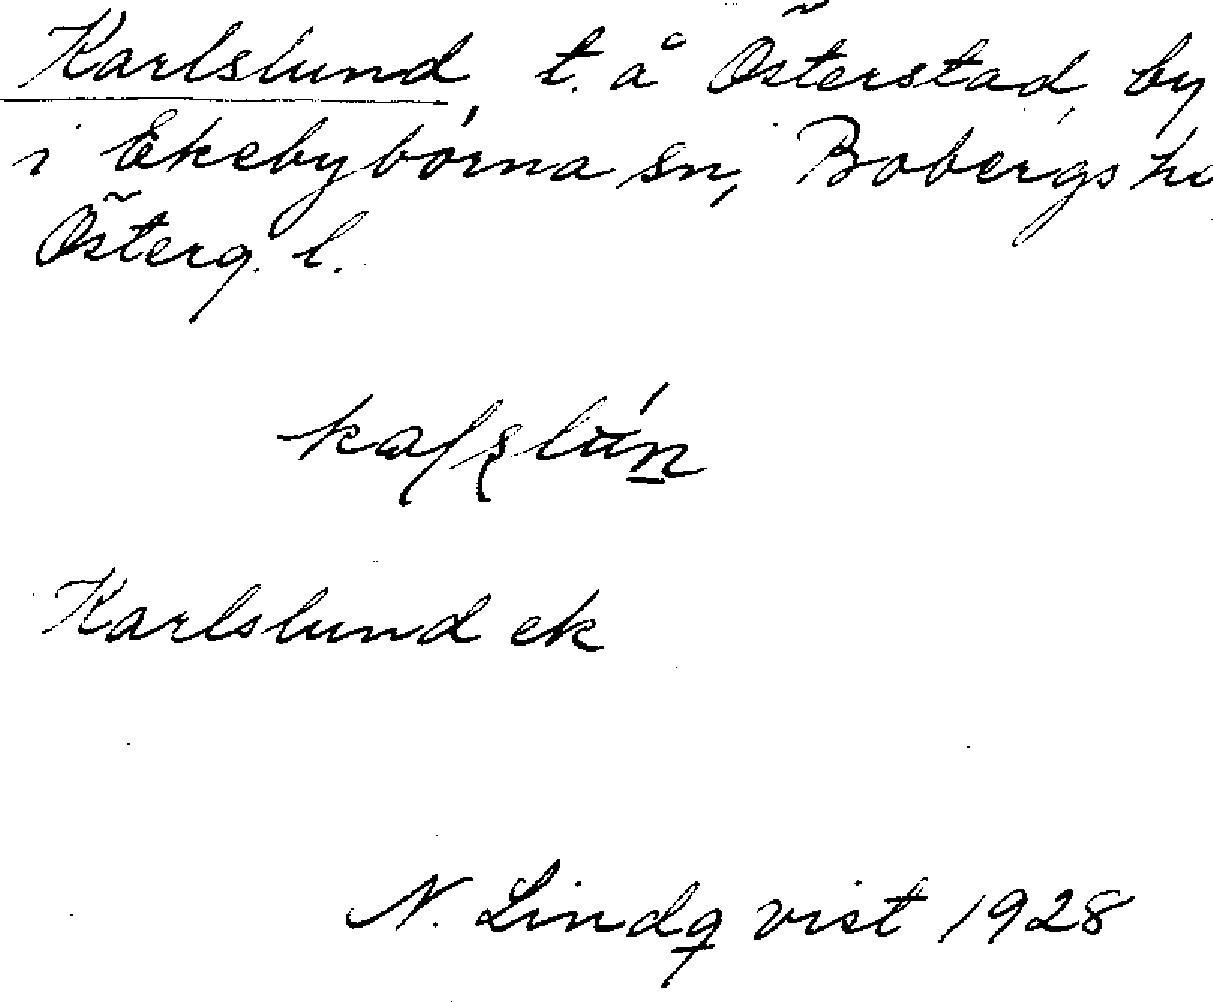 Karlslund, t. å Österstad, by
i Ekebyborna sn, Bobergs hd
Österg. l.
Karlslund ek
N. Lindqvist 1928